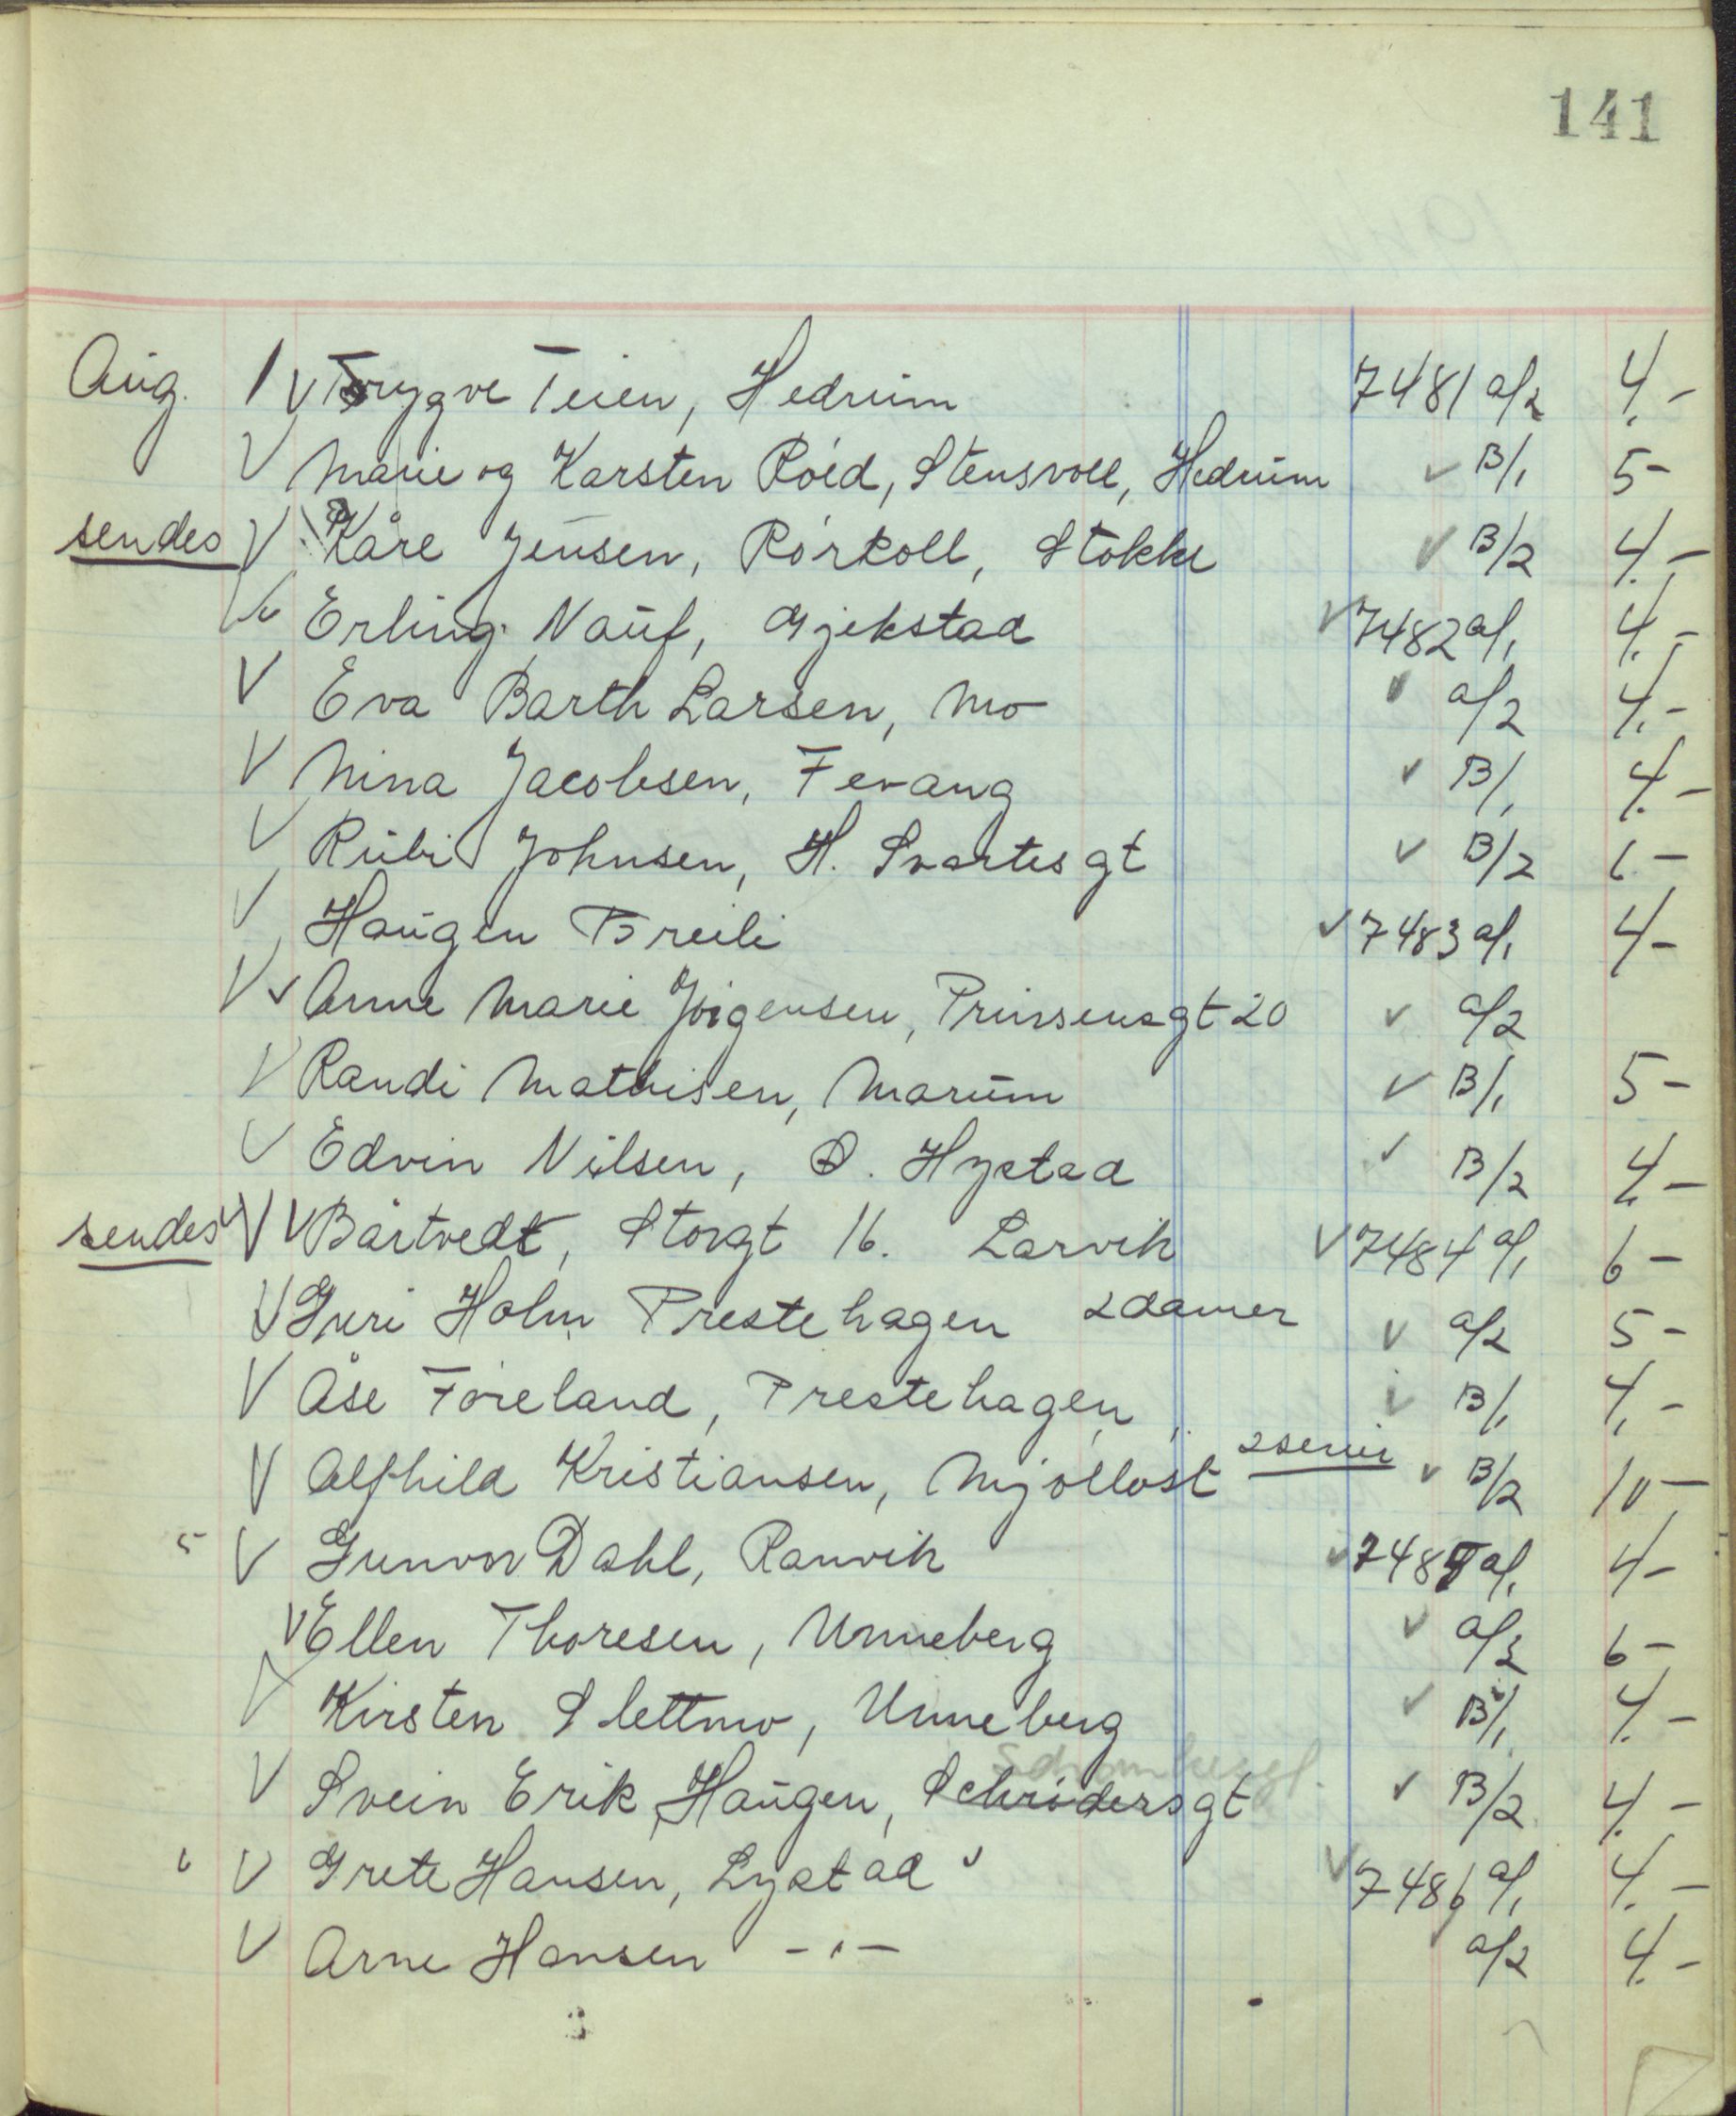 141
Aug. 1 V Trygve Teien, Hedrum 7481 a/2 4.-
V Marie og Karsten Röed, Stensvoll, Hedrum V B/1 5-
sendes V Kåre Jensen, Rörkoll, Stokke V B/2 4.-
V Erling Nauf, Gjekstad V 7482 a/1 4.-
V Eva Barth Larsen, Mo V a/2 4.-
V Nina Jacobsen, Fevang V B/1 4.-
V Rubi Johnsen, H. Svartesgt V B/2 6-
V Haugen Breili V 7483 a/1 4-
V V Anne Marie Jörgensen, Prinsensgt 20 V a/2
V Randi Mathisen, Marum V B/1 5-
V Edvin Nilsen, Ø. Hystad V B/2 4.-
sendes V V Bårtvedt, Storgt 16. Larvik V 7484 a/1 6-
V Guri Holm Prestehagen 2 damer V a/2 5-
V Åse Föreland, Prestehagen V B/1 4.-
V Alfhild Kristiansen, Mjölløst 2 serier V B/2 10-
5 V Gunvor Dahl, Ranvik V 7485 a/1 4-
V Ellen Thoresen, Unneberg V a/2 6-
V Kirsten Slettmo, Unneberg V B/1 4.-
V Svein Erik Haugen, Schrödersgt V B/2 4.-
6 V Grete Hansen, Lystad V V 7486 a/1 4.-
V Arne Hansen -"- a/2 4.-